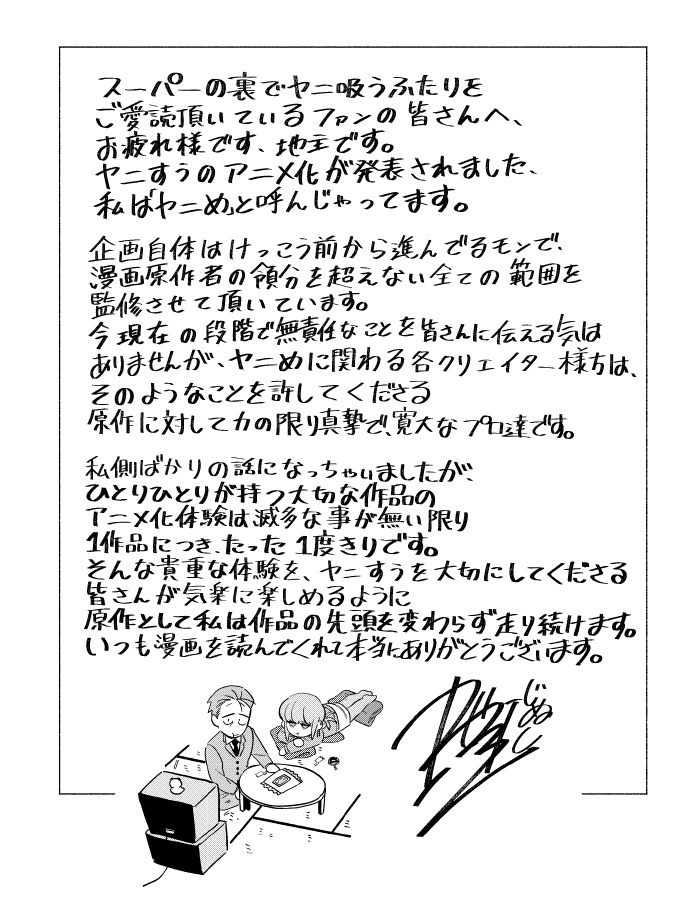 スーパーの裏でヤニ吸うふたりを
ご愛読頂いているファンの皆さんへ、
お疲れ様です、地主です。
ヤニすうのアニメ化が発表されました、
私は「ヤニめ」と呼んじゃってます。
企画自体はけっこう前から進んでるモンで、
漫画原作者の領分を超えない全ての範囲を
監修させて頂いています。
今現在の段階で無責任なことを皆さんに伝える気は
ありませんが、ヤニめに関わる各クリエイター様方は、
そのようなことを許してくださる
原作に対して力の限り真摯で、寛大なプロ達です。
私側ばかりの話になっちゃいましたが、
ひとりひとりが持つ大切な作品の
アニメ化体験は滅多な事が無い限り
1作品につき、たった1度きりです。
そんな貴重な体験を、ヤニすうを大切にしてくださる
皆さんが気楽に楽しめるように
原作として私は作品の先頭を変わらず走り続けます。
いつも漫画を読んでくれて本当にありがとうございます。
地主
じぬし